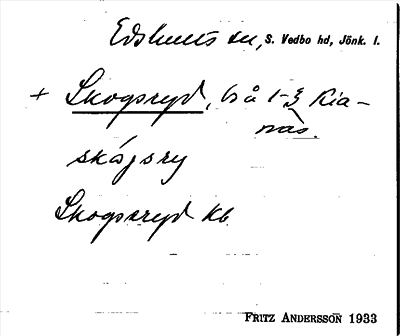 Edshults sn, S. Vedbo hd, Jönk. l.
+ Skogsryd, bs å 1-3 Kia-
näs.
skógsry
Skogsryd kb
FRITZ ANDERSSON 1933